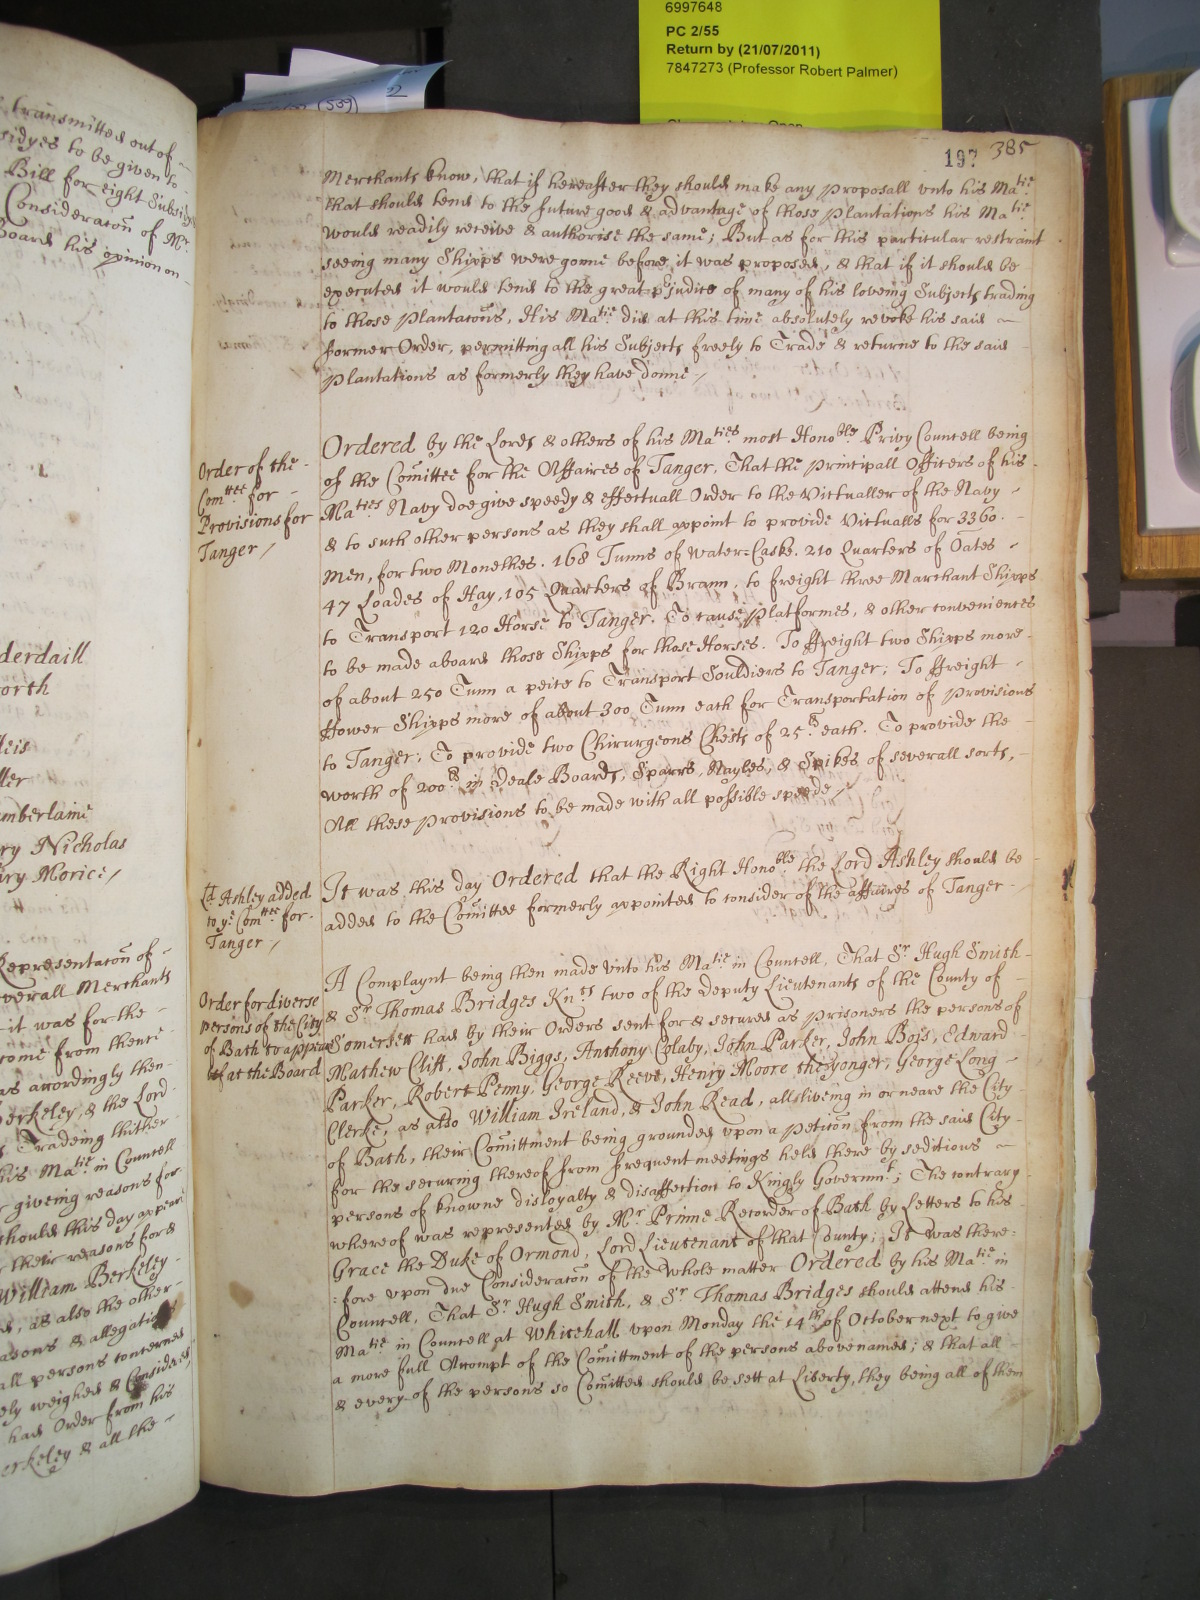 6997648
PC 2/55
Return by (21/07/2011)
7847273 (Professor Robert Palmer)
(539)
2
transmitted out of
sidyes to be given to
Bill for eight Subsidyes
Consideracōn of Mr.
Board his opinion on
derdaill
orth
ller
mberlaine
ry Nicholas
ary Morice /
Representacōn of
verall Merchants
it was for the
come from thence
as accordingly then
Berkeley, & the Lord
Tradeing thither
his Matie in Councell
giveing reasons for
should this day appeare
their reasons for &
William Berkeley
as also the other
asons & allegations
all persons concerned
ely weighed & Considered
had Order from his
erkeley & all the
197 385
Merchants know, that if hereafter they should make any proposall vnto his Matie
that should tend to the future good & advantage of those Plantations his Matie
would readily receive & authorise the same; But as for this particular restraint
seeing many Shipps were gonne before it was proposed, & that if it should be
executed it would tend to the great prjudice of many of his loveing Subjects trading
to those Plantacōns, His Matie did at this time absolutely revoke his said
former Order, permitting all his Subjects freely to Trade & returne to the said
Plantations as formerly they have donne /
Order of the
Comttee for
Provisions for
Tanger /
Ordered by the Lords & others of his Maties most Honoble Privy Councell being
of the Comittee for the Affaires of Tanger, That the Principall Officers of his
Maties Navy doe give speedy & effectuall Order to the Victualler of the Navy
& to such other persons as they shall appoint to provide Victualls for 3360.
Men, for two Monethes. 168 Tunns of water=Caske. 210 Quarters of Oates
47 Loades of Hay, 105 Quarters of Brann, to freight three Marchant Shipps
to Transport 120 Horse to Tanger. To cause platformes, & other conveniences
to be made aboard those Shipps for those Horses. To ffreight two Shipps more
of about 250 Tunn a peice to Transport Souldiers to Tanger; To ffreight
ffower Shipps more of about 300 Tunn each for Transportation of Provisions
to Tanger; To provide two Chirurgeons Chests of 25li each. To provide the
worth of 200li in Deale Boards, Sparrs, Nayles, & Spikes of severall sorts,
All these provisions to be made with all possible speede
Ld Ashley added
to ye Comttee for
Tanger /
It was this day Ordered that the Right Honoble the Lord Ashley should be
added to the Comittee formerly appointed to consider of the affaires of Tanger
Order for diverse
persons of the City
of Bath to appeare
at the Board
A Complaynt being then made vnto his Matie in Councell, That Sr Hugh Smith
& Sr Thomas Bridges Knts two of the Deputy Lieutenants of the County of
Somersett had by their Orders sent for & secured as prisoners the persons of
Mathew Clift, John Biggs, Anthony Colaby, John Parker, John Bois, Edward
Parker, Robert Penny, George Reeve, Henry Moore the yonger, George Long
Clerke, as also William Ireland, & John Read, all liveing in or neare the City
of Bath, their Comittment being grounded vpon a Peticōn from the said City
for the securing thereof from frequent meetings held there by seditious
persons of knowne disloyalty & disaffection to Kingly Governmt; The contrary
whereof was represented by Mr Prinne Recorder of Bath by Letters to his
Grace the Duke of Ormond, Lord Lieutenant of that County; It was there=
=fore vpon due Consideracōn of the whole matter Ordered by his Matie in
Councell, That Sr Hugh Smith, & Sr Thomas Bridges should attend his
Matie in Councell at Whitehall vpon Monday the 14th of October next to give
a more full Accompt of the Comittment of the persons abovenamed; & that all
& every of the persons so Comitted should be sett at Liberty, they being all of them